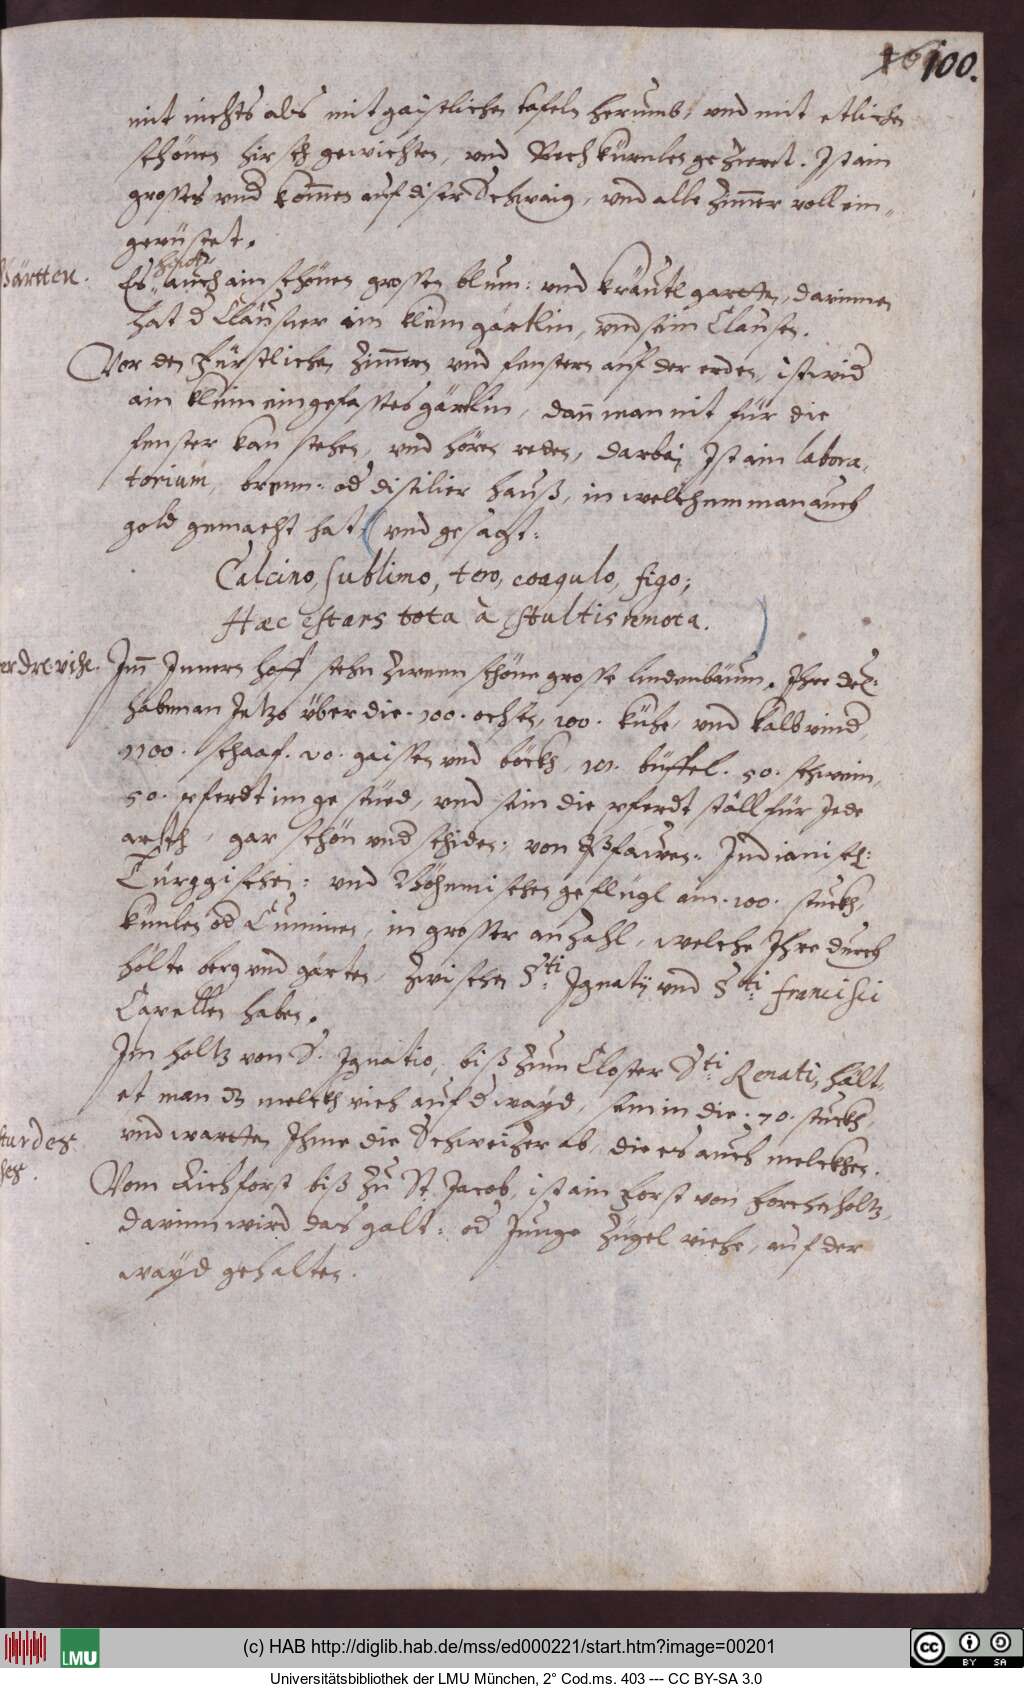 100.
mit nichts als mit gaistlichen tafeln herumb, vnd mit etlichen
schönen hirsch gewichten, vnd Rech kürnlen gezieret. Ist ain
grosses vnd komen auf diser Schwaig, vnd alle Zimer voll ein„
gerüstet.
Gärtten.
Es auch ain schönen grossen blum: vnd kräutl gartten, darinnen
hat d Clausner ain klein gärtlin, vnd sein Clausen.
Vor den Fürstlichen Zimern vnd fenstern auf der erden, ist wid
ain klein eingefasstes gärtlin, dan man nit für die
fenster kan stehen, vnd hören reden, darbej Ist ain labora„
torium, brenn: od distilier hauß, in welchem man auch
gold gemacht hat, (vnd gesagt:
Calcino, sublimo, tero, coagulo, figo;
Hæc est ars tota à stultis remota. )
Im Innern hoff stehn zween schöne grosse lindenbäum. Ihre drl:
haben an Jetzo über die 100. ochsen, 100. kühe, vnd kalb rind,
1100. schaaf. 20. gaissen vnd böckh, 101. büffel. 50. schwein,
50. pferdt im gestüed, vnd sein die pferdt ställ für Jede
arth, gar schön vnd schiden: von Pfawen: Indianisch:
Türggischen: vnd Böhmischen geflügl ain 100. stuckh,
künlen od Cuninen, in grosser anzahl, welche Ihre durch
holte berg vnd gärten, zwischen Sti Ignatij vnd Sti Francisci
Capellen haben.
Im holtz von S. Ignatio, biß zum Closter Sti Renati, hält„
et man dz melckh vieh auf d wayd, sein in die 70. stuckh,
vnd wartten Ihme die Schweizer ab, die es auch melckhen.
Vom Aichforst biß zu St. Jacob, ist ain Forst von Forchenholtz,
darinn wird das galt: od Junge zügel viehe, auf der
wayd gehalten.
(c) HAB http://diglib.hab.de/mss/ed000221/start.htm?image=00201
LMU
cc BY SA
Universitätsbibliothek der LMU München, 2° Cod.ms. 403 --- CC BY-SA 3.0